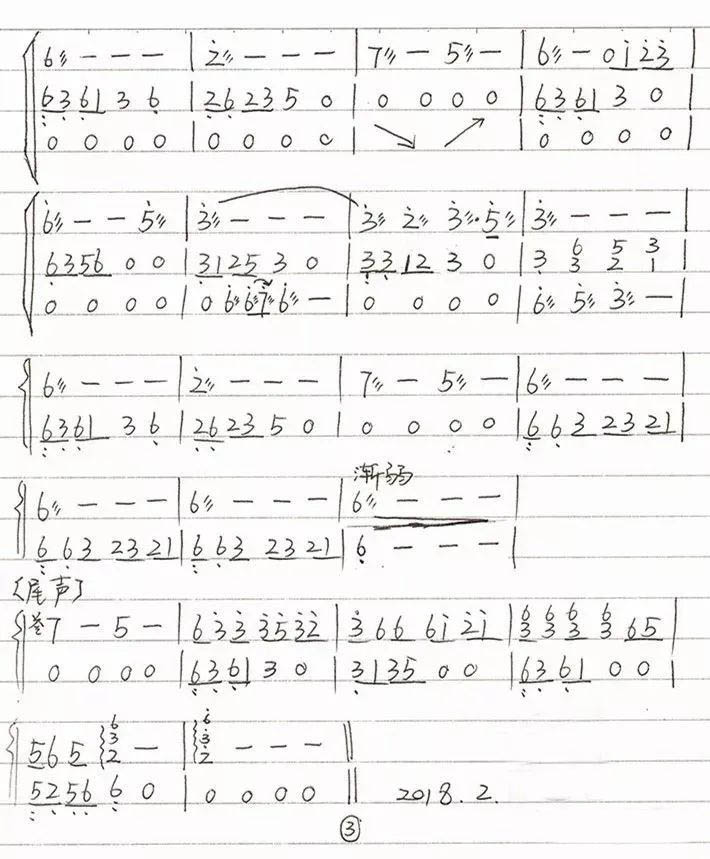 6 - - - | 2̇ - - - | 7 - 5 - | 6 - 0 1̇ 2̇ 3̇ |
6 3 6 1 3 6 | 2 6 2 3 5 0 | 0 0 0 0 | 6 3 6 1 3 0 |
0 0 0 0 | 0 0 0 0 | ↘ ↗ | 0 0 0 0 |
6̇ - - 5̇ | 3̇ - - - | 3̇ 2̇ 3̇· 5̇ | 3̇ - - - |
6 3 5 6 0 0 | 3 1 2 5 3 0 | 3 3 1 2 3 0 | 3 6/3 5/2 3/1 |
0 0 0 0 | 0 6̇ 6̇ 7̇ 6̇ - | 0 0 0 0 | 6̇ 5̇ 3̇ - |
6 - - - | 2̇ - - - | 7 - 5 - | 6 - - - |
6 3 6 1 3 6 | 2 6 2 3 5 0 | 0 0 0 0 | 6 6 3 2 3 2 1 |
渐弱
6 - - - | 6 - - - | 6 - - - |
6 6 3 2 3 2 1 | 6 6 3 2 3 2 1 | 6 - - - |
(尾声)
7 - 5 - | 6 3̇ 3̇ 3̇ 5̇ 3̇ 2̇ | 3̇ 6 6 6 1̇ 2̇ 1̇ | 6/3 6/3 6/3 6/3 6 5 |
0 0 0 0 | 6 3 6 1 3 0 | 3 1 3 5 0 0 | 6 3 6 1 0 0 |
5 6 5 6/3/2 - | 6̇/3̇/2̇ - - - ‖
5 2 5 6 6 0 | 0 0 0 0 ‖ 2018.2.
③